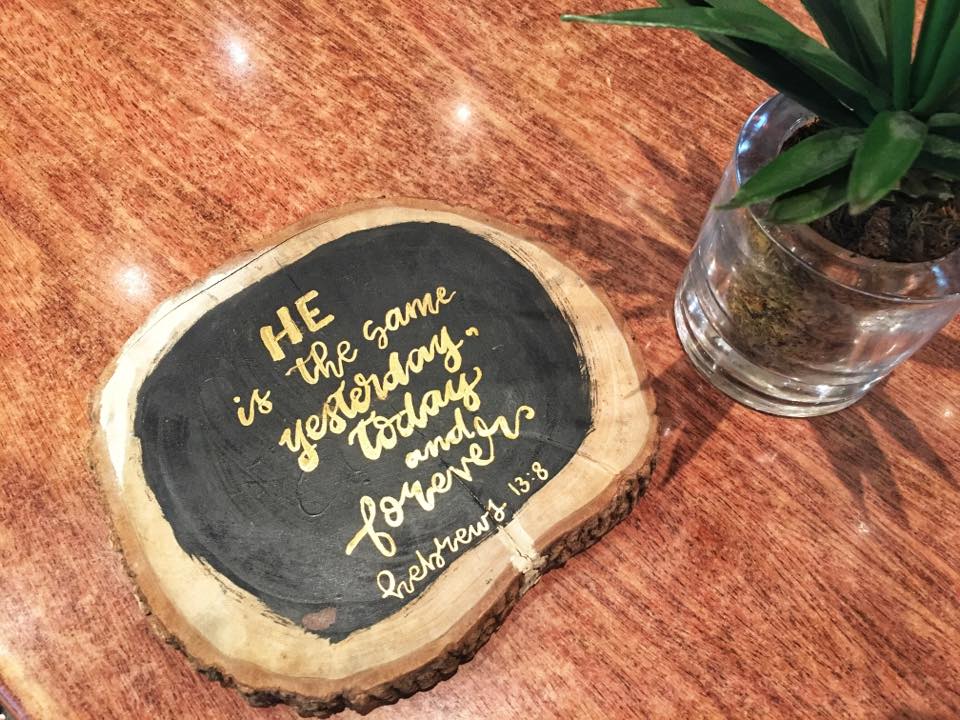 HE
is the same
yesterday,
today
and
forever
hebrews 13:8